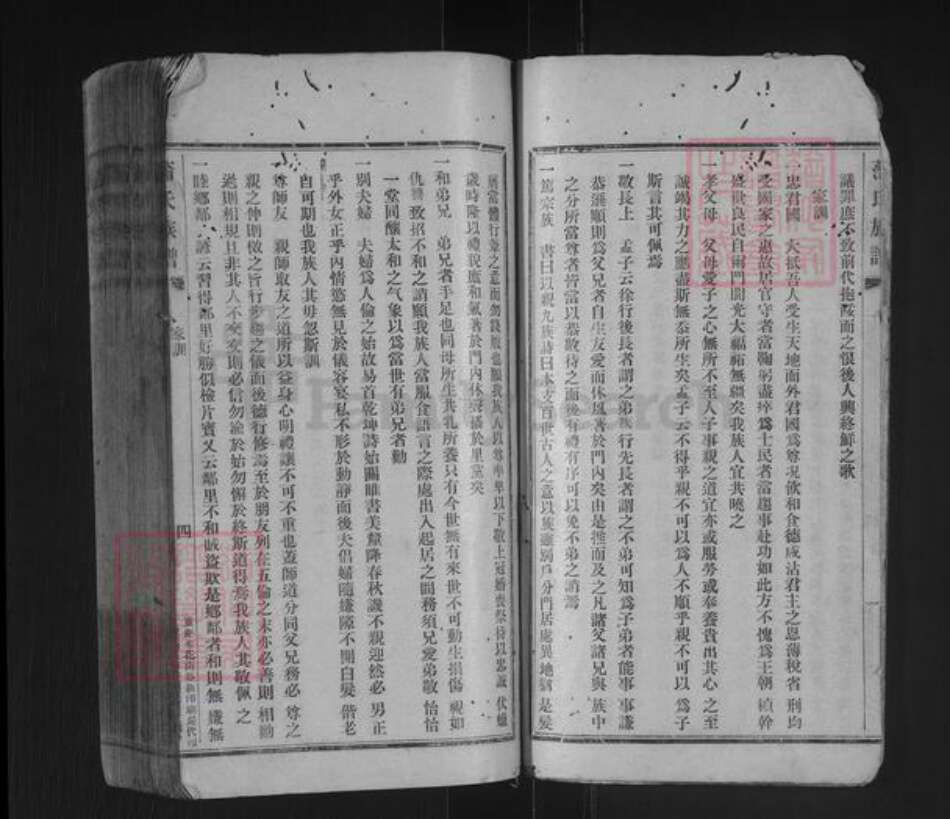 議罪庶不致前代抱陵面之恨後人興終鮮之歌
家訓
一忠君國 大抵吾人受生天地面外君國為尊況飲和食德咸沾君主之恩薄稅省 刑均
受國家之惠故居官守者當鞠躬盡瘁為士民者當趨事赴功如此方不愧為王朝 楨幹
盛世良民自爾門閭光大福祐無疆矣我族人宜共曉之
一孝父母 父母愛子之心無所不至人子事親之道宜亦或服勞或奉養貴出其心 之至
誠竭其力之應盡斯無忝所生矣孟子云不得乎親不可以為人不順乎親不可以 為子
斯言其可佩焉
一敬長上 孟子云徐行後長者謂之弟疾行先長者謂之不弟可知為子弟者能事 事謙
恭遜順則為父兄者自生友愛而休風著於門內矣由是推而及之凡諸父諸兄與 族中
之分所當尊者皆當以恭敬待之而後有禮有序可以免不弟之誚焉
一篤宗族 書曰以親九族詩曰本支百世古人之意以族雖別戶分門居處異地猶 是髮
膚當體行葦之意而勿錢殷也願我族人以尊率卑以下敬上冠婚喪祭待以忠誠 伏臘
歲時隆以禮貌庶和氣著於門內休聲播於里黨矣
一和弟兄 弟兄者手足也同母所生共乳所養只有今世無有來世不可動生損傷 視如
仇讐致招不和之誚願我族人當服食語言之際處出入起居之間務須兄愛弟敬 怡怡
一堂同釀太和之气象以為當世有弟兄者勸
一別夫婦 夫婦為人倫之始故易首乾坤詩始關雎書美釐降春秋譏不親迎然必 男正
乎外女正乎內情慾無見於儀容宴私不形於動靜而後夫倡婦隨嫌隙不開白髮 偕老
自可期也我族人其毋忽斯訓
一尊師友 親師取友之道所以益身心明禮讓不可不重也蓋師道分同父兄務必 尊之
親之伸則傚之旨行步趨之儀而後德行修焉至於朋友列在五倫之末亦必善則 相勸
過則相規且非其人不交交則必信勿渝於始勿懈於終斯道得焉我族人其敬佩 之
一睦鄉鄰 諺云習得鄰里好勝似檢片寶又云鄰里不和賊盜欺是鄉鄰者和則無 嫌無
氏族譜
家訓
四